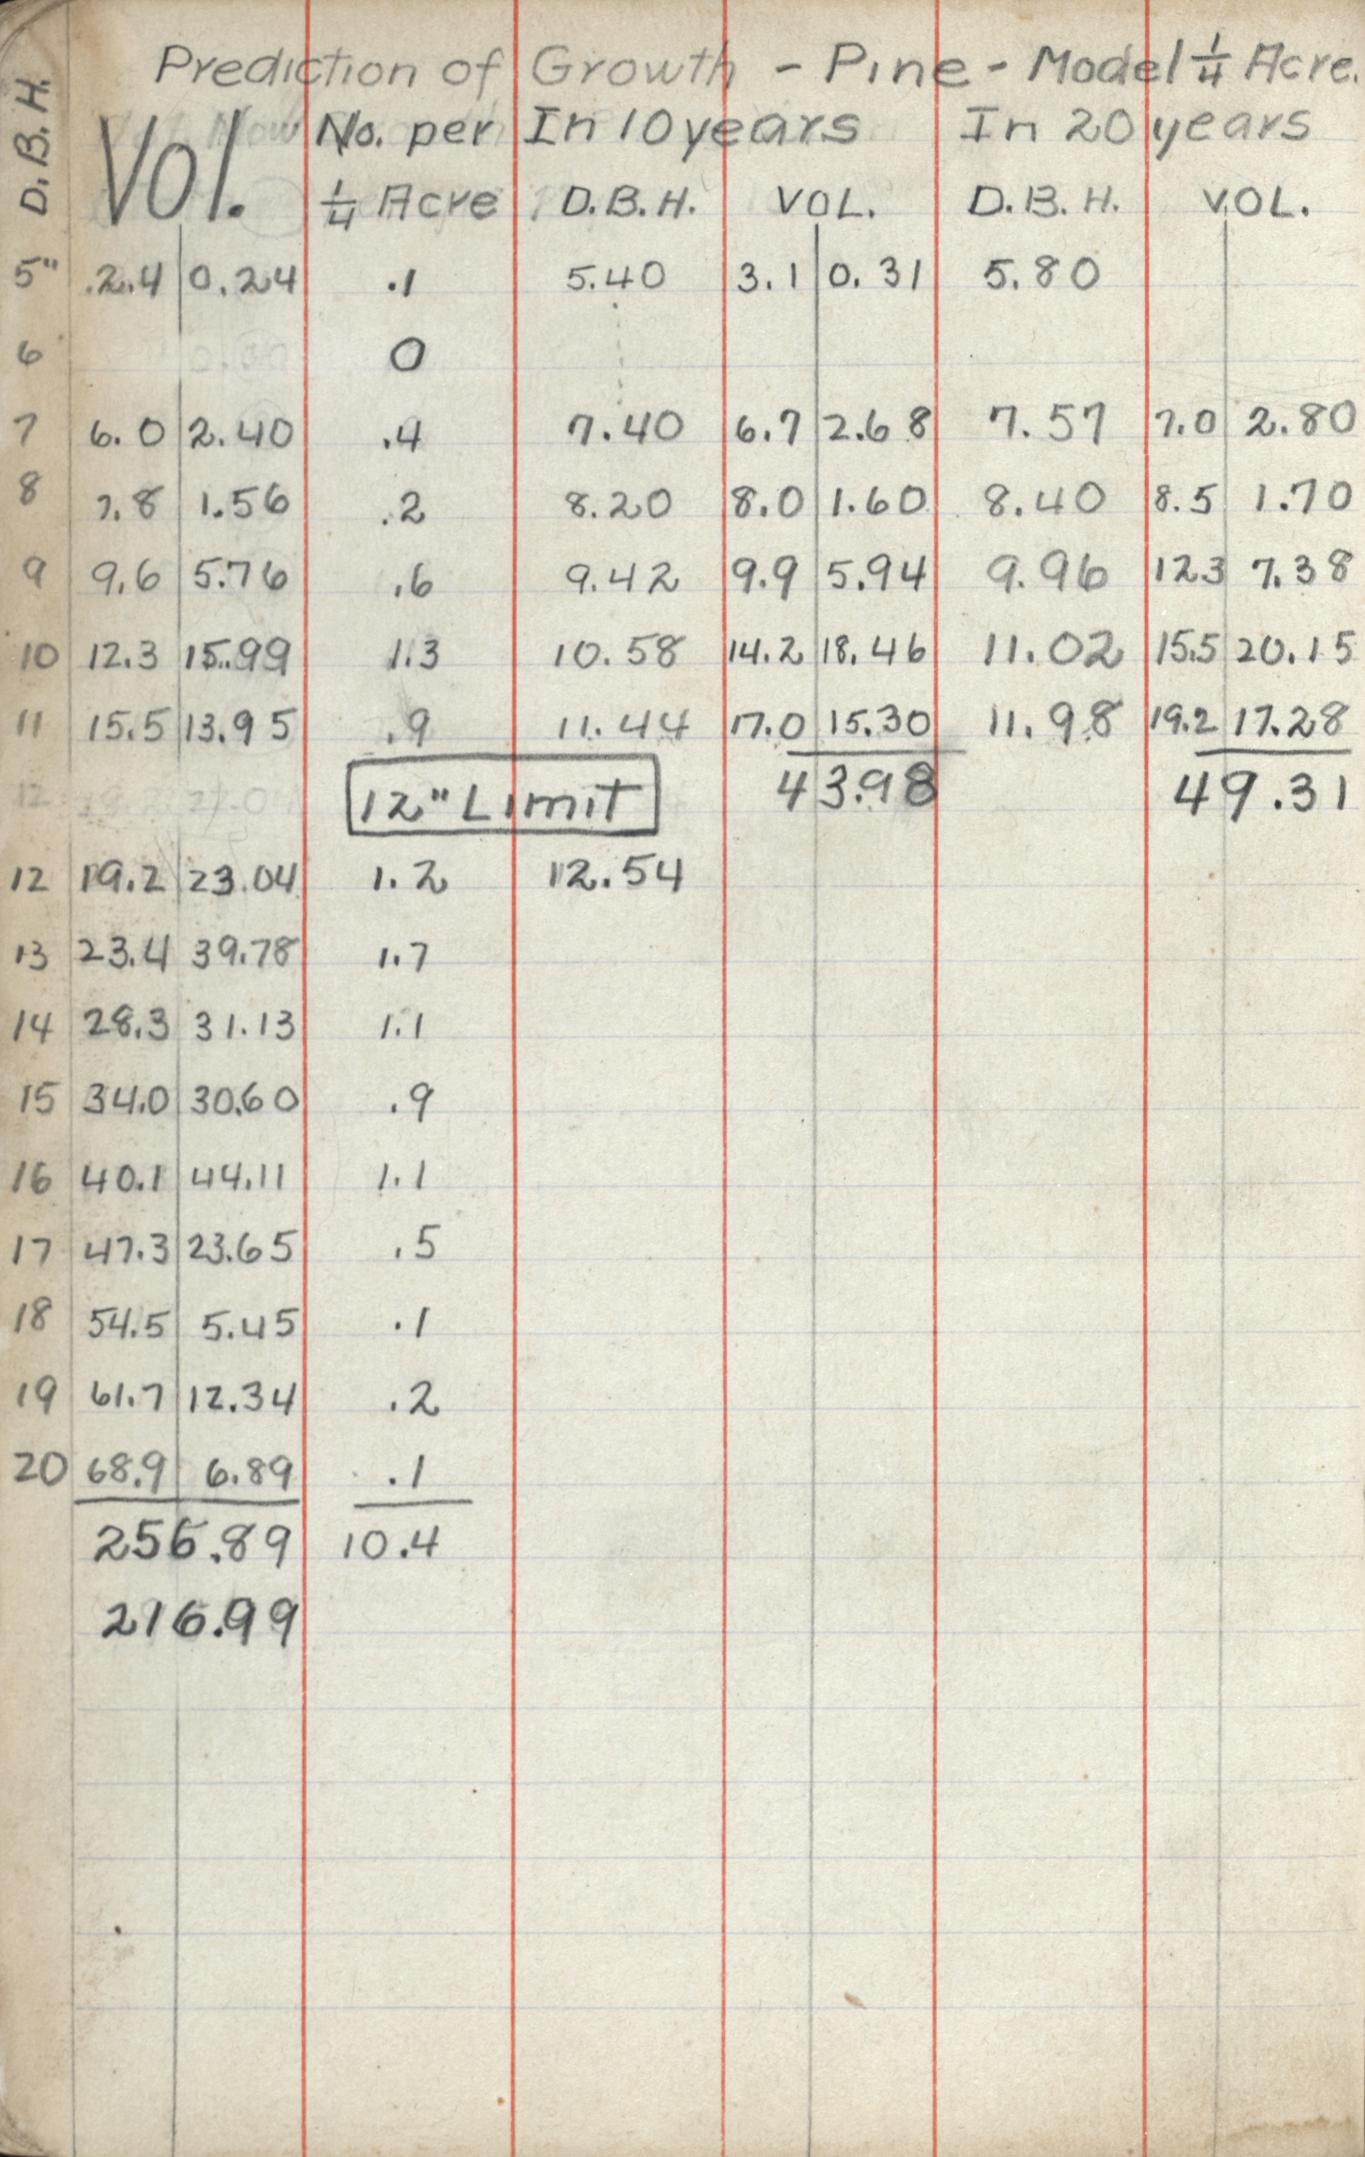 Prediction of Growth - Pine - Model 1/4 Acre.
D.B.H. Vol. No. per In 10 years In 20 years
1/4 Acre D.B.H. VOL. D.B.H. VOL.
5" 2.4 0.24 .1 5.40 3.1 0.31 5.80
6 0
7 6.0 2.40 .4 7.40 6.7 2.68 7.57 7.0 2.80
8 7.8 1.56 .2 8.20 8.0 1.60 8.40 8.5 1.70
9 9.6 5.76 .6 9.42 9.9 5.94 9.96 12.3 7.38
10 12.3 15.99 1.3 10.58 14.2 18.46 11.02 15.5 20.15
11 15.5 13.95 .9 11.44 17.0 15.30 11.98 19.2 17.28
12" Limit 43.98 49.31
12 19.2 23.04 1.2 12.54
13 23.4 39.78 1.7
14 28.3 31.13 1.1
15 34.0 30.60 .9
16 40.1 44.11 1.1
17 47.3 23.65 .5
18 54.5 5.45 .1
19 61.7 12.34 .2
20 68.9 6.89 .1
256.89 10.4
216.99